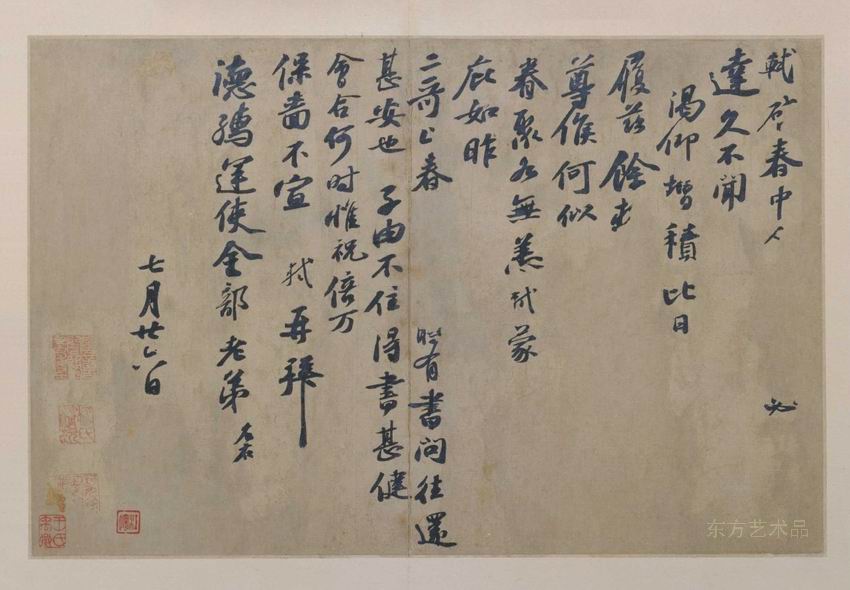 軾啓春中人 必
達久不聞
渴仰增積比日
履兹餘
尊候何似
眷聚各無恙軾蒙
庇如昨
二哥上春 有書問往還
甚安也 子由不住得書甚健
會合何時惟祝倍万
保嗇不宣 軾再拜
德孺運使金部老弟
七月廿六日
东方艺术品